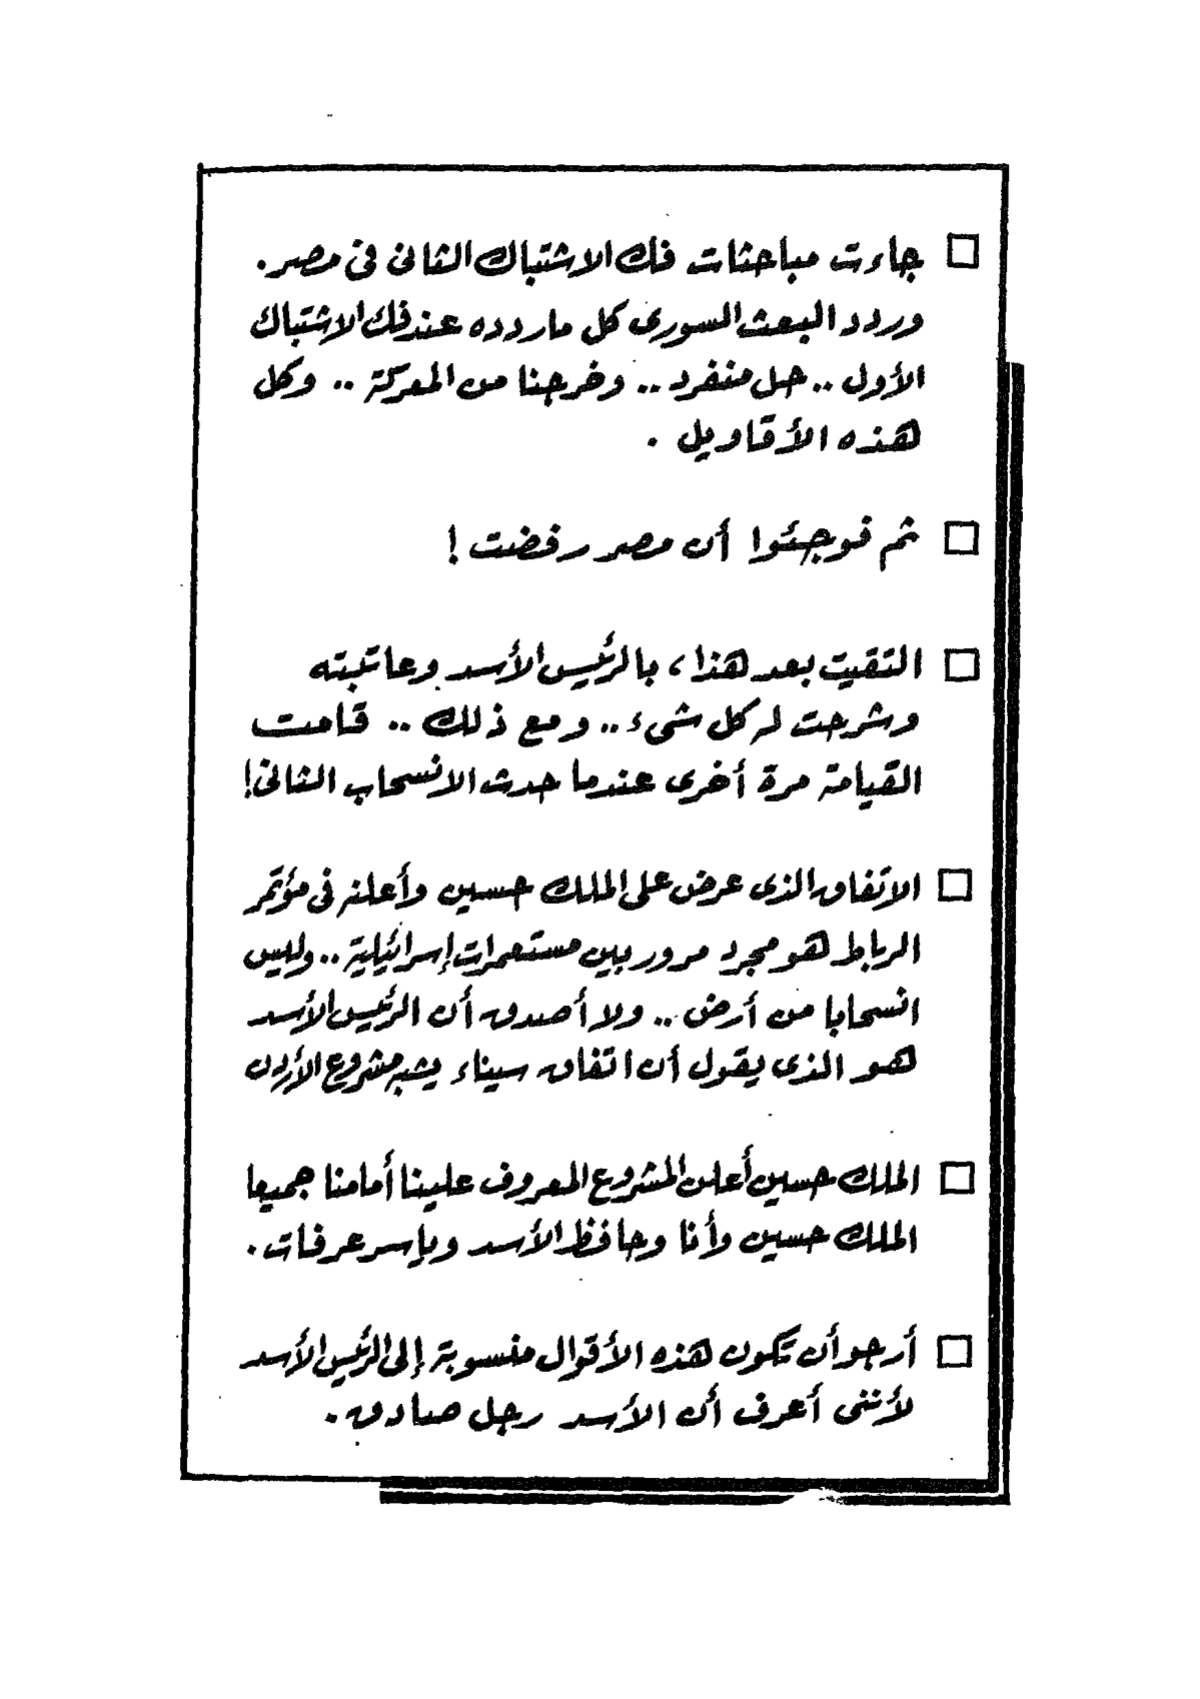 □ جاءت مباحثات فك الاشتباك الثانى فى مصر.
وردد البعث السورى كل ما ردده عند فك الاشتباك
الأول .. حل منفرد .. وخرجنا من المعركة .. وكل
هذه الأقاويل .
□ ثم فوجئوا أن مصر رفضت !
□ التقيت بعد هذا ، بالرئيس الأسد وعاتبته
وشرحت له كل شىء .. ومع ذلك .. قامت
القيامة مرة أخرى عندما حدث الانسحاب الثانى!
□ الاتفاق الذى عرض على الملك حسين وأعلنه فى مؤتمر
الرباط هو مجرد مرور بين مستعمرات إسرائيلية .. وليس
انسحابا من أرض .. ولا أصدق أن الرئيس الأسد
هو الذى يقول أن اتفاق سيناء يشبه مشروع الأردن
□ الملك حسين أعلن المشروع المعروف علينا أمامنا جميعا
الملك حسين وأنا وحافظ الأسد وياسر عرفات .
□ أرجو أن تكون هذه الأقوال منسوبة إلى الرئيس الأسد
لأننى أعرف أن الأسد رجل صادق .